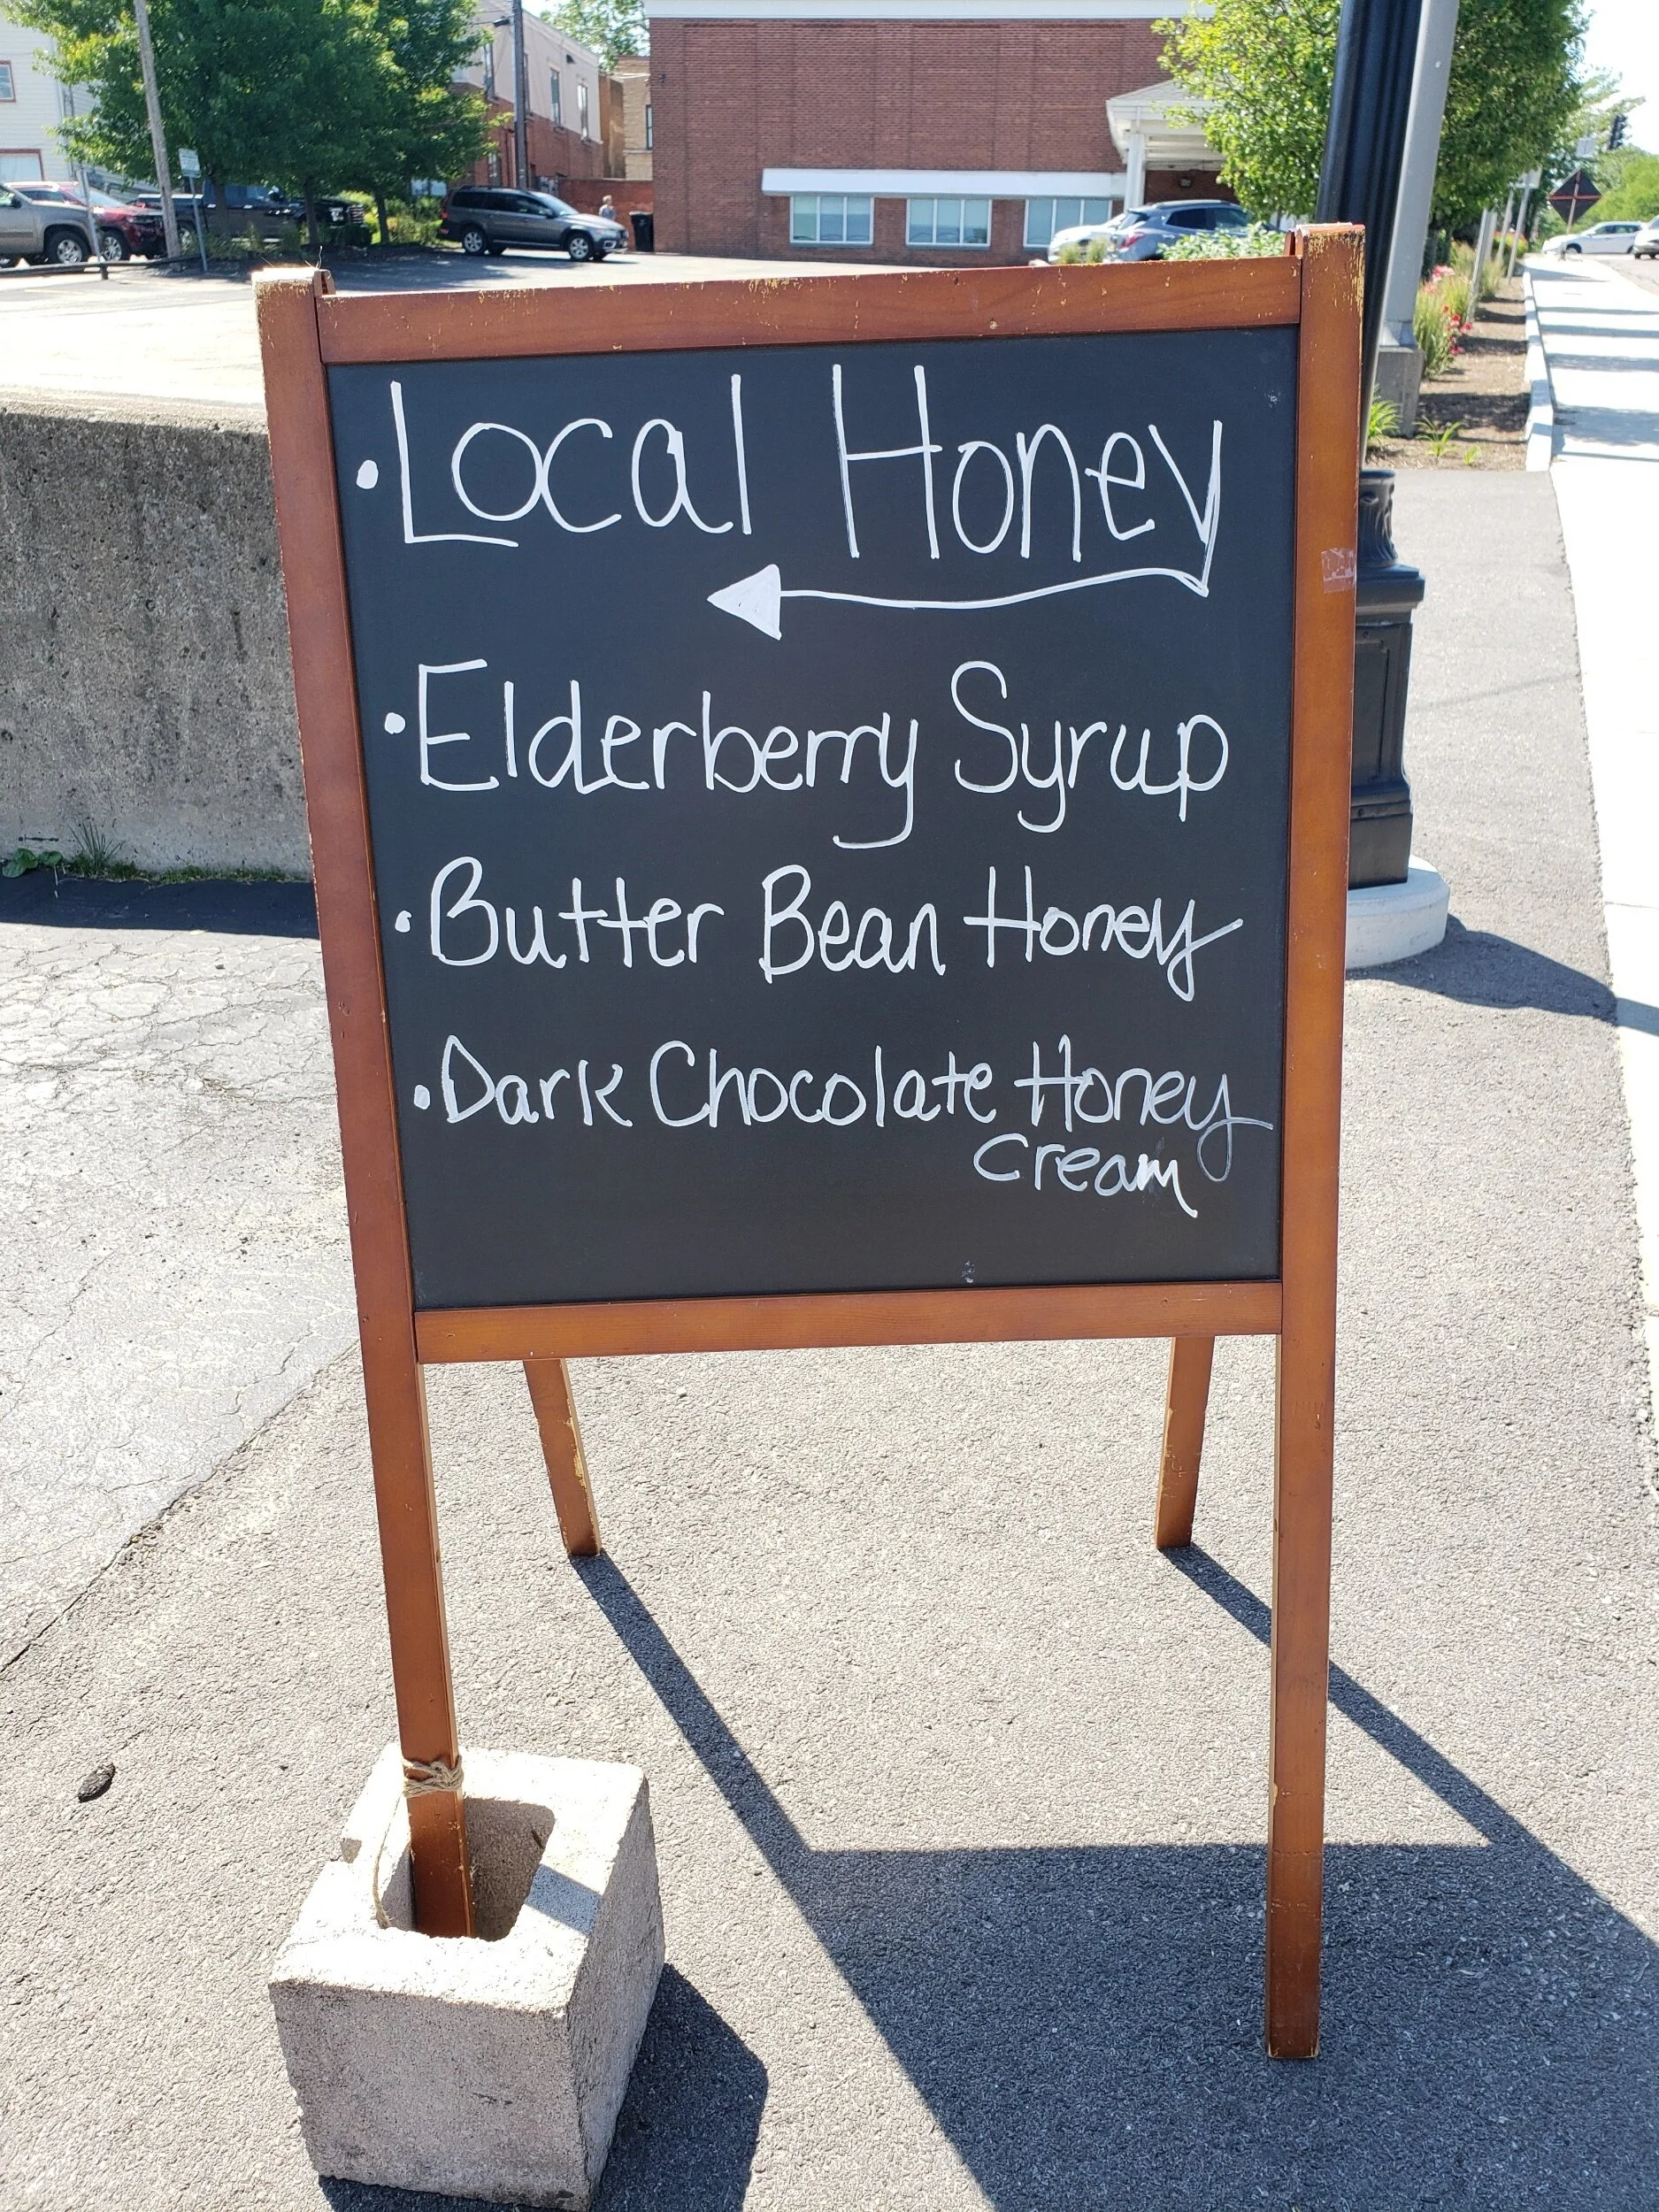 • Local Honey
• Elderberry Syrup
• Butter Bean Honey
• Dark Chocolate Honey
Cream